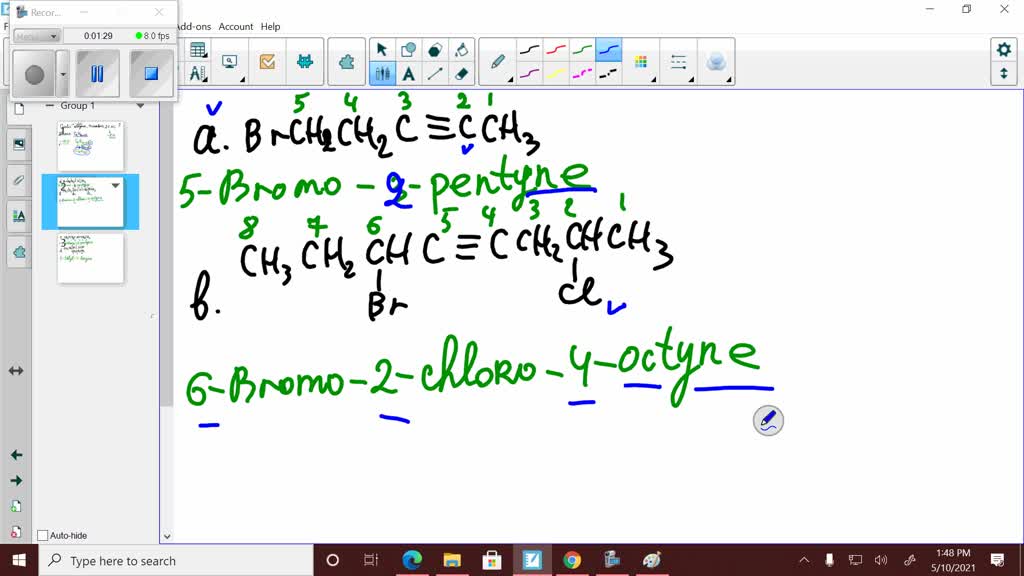 Recor...
Menu
0:01:29
8.0 fps
Add-ons Account Help
Group 1
5 4 3 2 1
a. BrCH2CH2C≡CCH3
5-Bromo-2-pentyne
8 7 6 5 4 3 2 1
b. CH3CH2CHC≡CCH2CHCH3
Br Cl
6-Bromo-2-chloro-4-octyne
Auto-hide
Type here to search
1:48 PM
5/10/2021